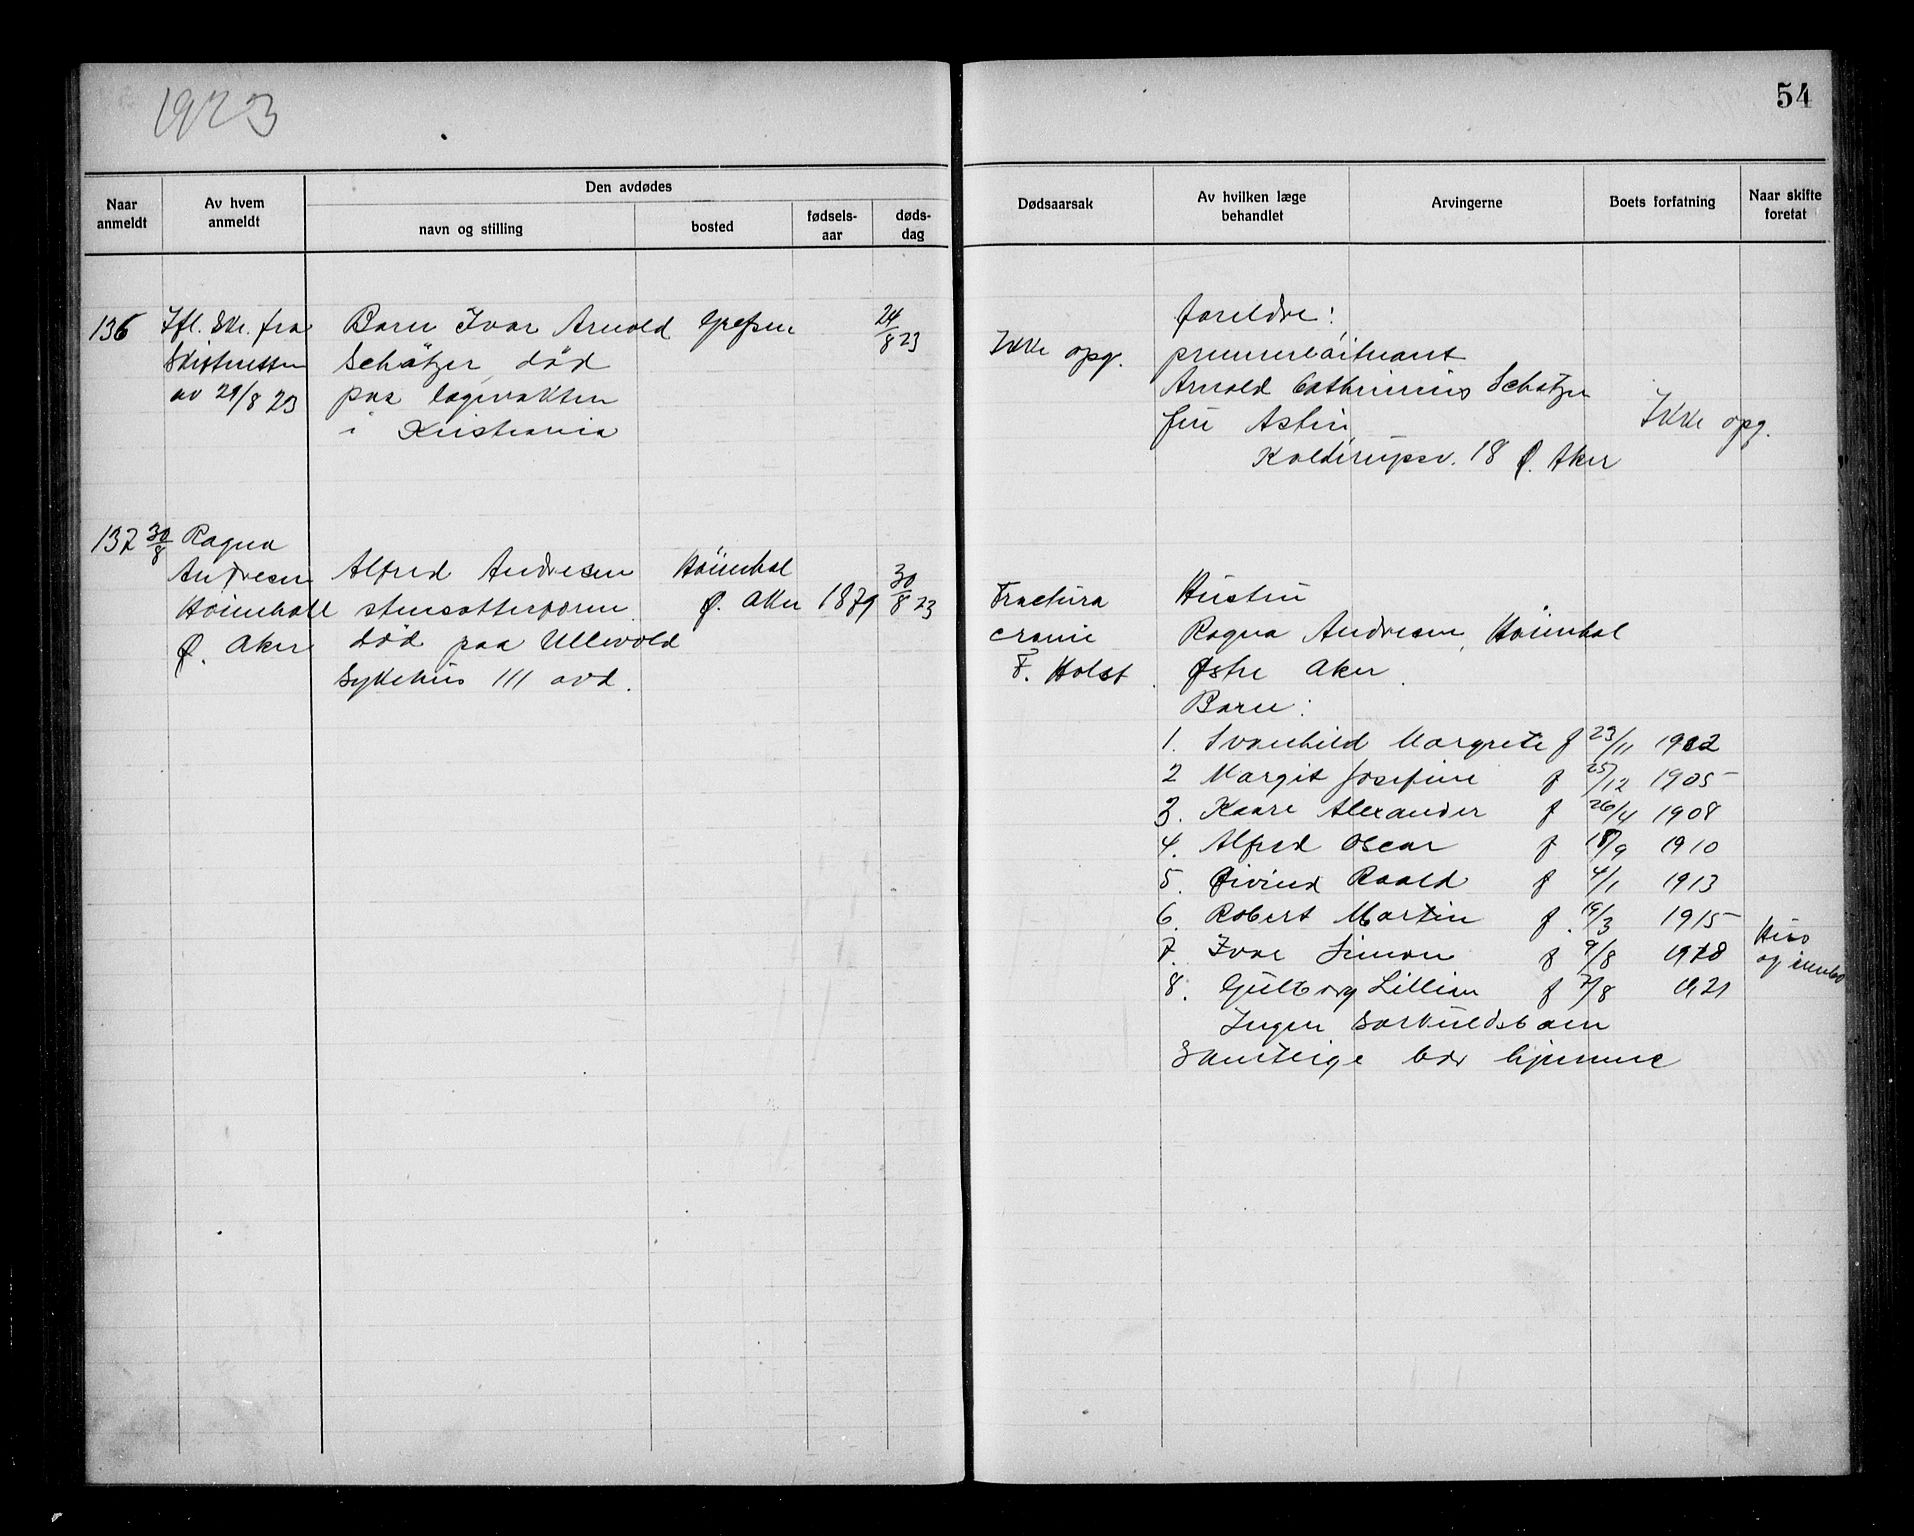 1923
54
Naar anmeldt
Av hvem anmeldt
Den avdødes
navn og stilling
bosted
fødsels-aar
døds-dag
Dødsaarsak
Av hvilken læge behandlet
Arvingerne
Boets forfatning
Naar skifte foretat
136
Ifl. Skr. fra
Skifteretten
av 29/8 23
Barn Ivar Arnold
Schätzer, død
paa lægevakten
i Kristiania
Grefsen
24/8 23
Ikke opg.
foreldre:
premierløitnant
Arnold Cathrinius Schätzer
fru Astri
Kolderupsv. 18 Ø. Aker
Ikke opg.
137 30/8 Ragna
Andresen
Høienhall
Ø. Aker
Alfred Andresen
stensætterform.
død paa Ullevold
Sykehus III avd.
Høienhal
Ø. Aker
1879
30/8 23
Fractura
cranie
F. Holst
Hustru
Ragna Andresen, Høienhal
Østre Aker.
Barn:
1. Svanhild Margrete f 23/11 1902
2 Margit Josefine f 25/12 1905
3. Kaare Alexander f 26/4 1908
4. Alfred Oscar f 18/9 1910
5. Øivind Roald f 4/1 1913
6. Robert Martin f. 19/3 1915
7. Ivar Simon f 9/8 1918
8. Gulborg Lillian f 7/8 1921
Ingen Særkuldsbarn
Samtlige bor hjemme
Hus
og